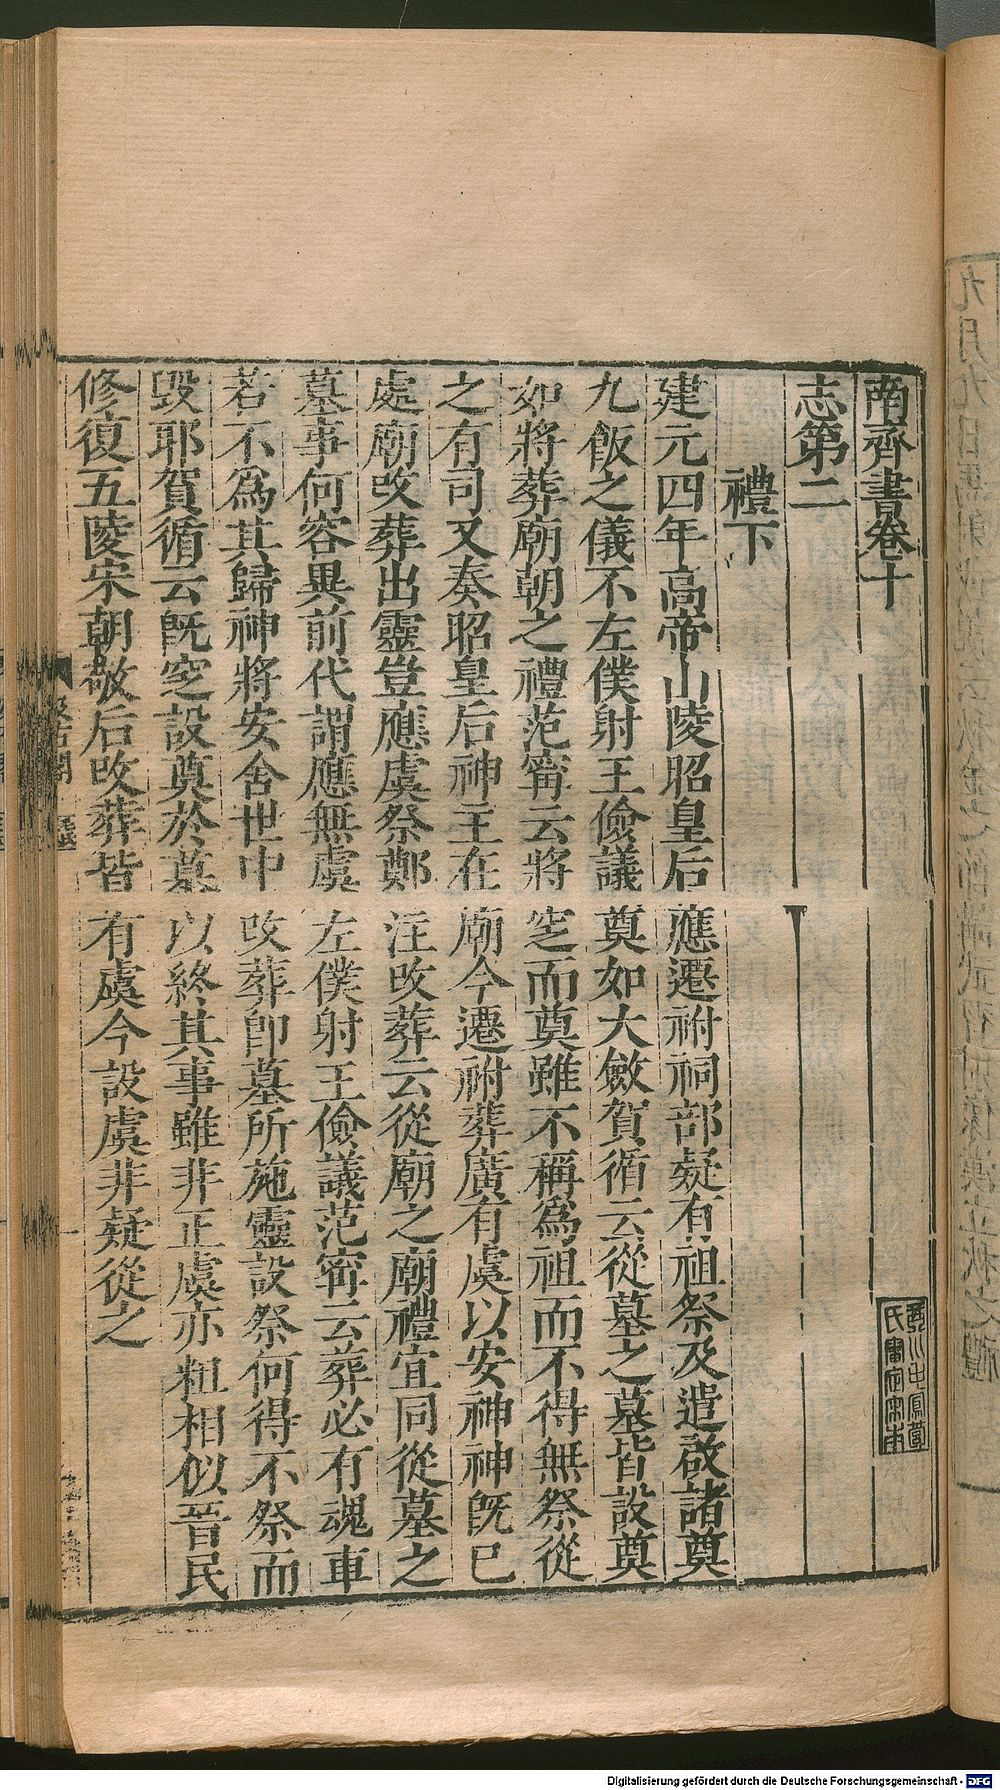 南齊書卷十
志第二
禮下
建元四年高帝山陵昭皇后應遷祔祠部疑有祖祭及遣啟諸奠
九飯之儀不左僕射王儉議奠如大斂賀循云從墓之墓皆設奠
如將葬廟朝之禮范甯云將窆而奠雖不稱爲祖而不得無祭從
之有司又奏昭皇后神主在廟今遷祔葬廣有虞以安神神既已
處廟改葬出靈豈應虞祭鄭注改葬云從廟之廟禮宜同從墓之
墓事何容異前代謂應無虞左僕射王儉議范甯云葬必有魂車
若不爲其歸神將安舍世中改葬卽墓所施靈設祭何得不祭而
毀耶賀循云既窆設奠於墓以終其事雖非正虞亦粗相似晉民
修復五陵宋朝敬后改葬皆有虞今設虞非疑從之
Digitalisierung gefördert durch die Deutsche Forschungsgemeinschaft - DFG